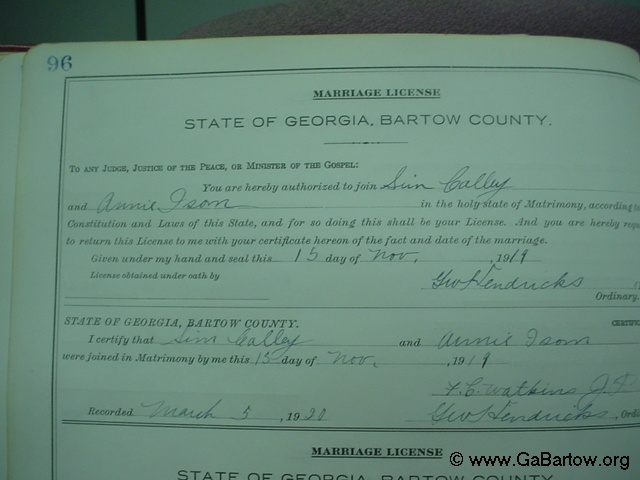 96
MARRIAGE LICENSE
STATE OF GEORGIA, BARTOW COUNTY.
TO ANY JUDGE, JUSTICE OF THE PEACE, OR MINISTER OF THE GOSPEL:
You are hereby authorized to join Sim Calley
and Annie Ison in the holy state of Matrimony, according to
Constitution and Laws of this State, and for so doing this shall be your License. And you are hereby
to return this License to me with your certificate hereon of the fact and date of the marriage.
Given under my hand and seal this 15 day of Nov, , 1919
License obtained under oath by Geo Hendricks
Ordinary.
STATE OF GEORGIA, BARTOW COUNTY.
I certify that Sim Calley and Annie Ison
were joined in Matrimony by me this 15 day of Nov, , 1919
F. C. Watkins J. P.
Recorded March 5 , 1920 Geo Hendricks ,
MARRIAGE LICENSE
STATE OF GEORGIA, BARTOW COUNTY
© www.GaBartow.org